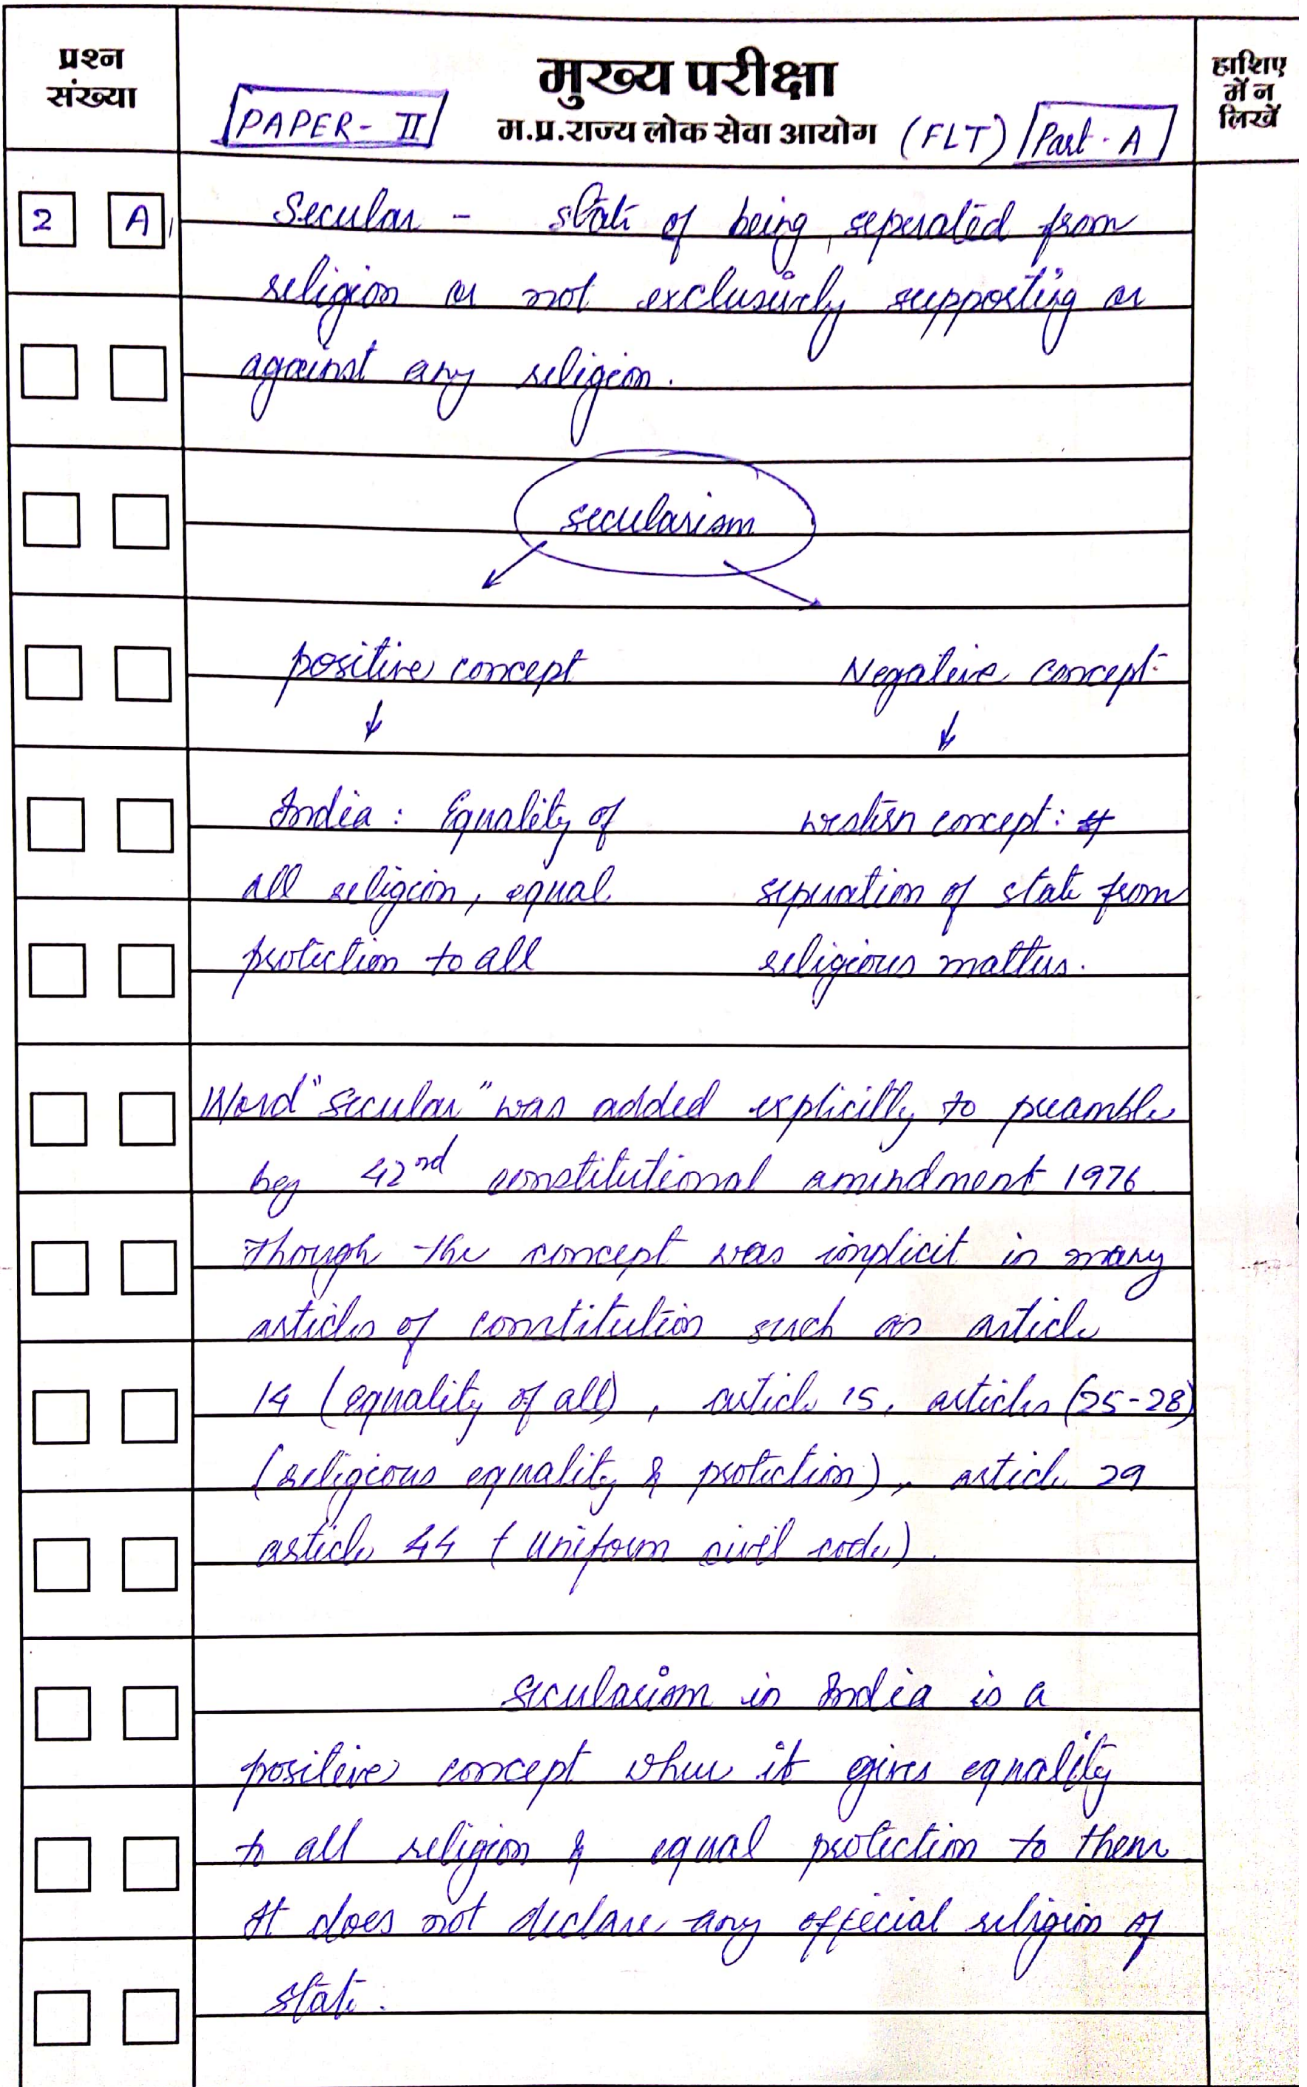 प्रश्न
संख्या
मुख्य परीक्षा
हाशिए
में न
लिखें
PAPER- II
म.प्र.राज्य लोक सेवा आयोग (FLT) Part - A
2 A
Secular - state of being seperated from
religion or not exclusively supporting or
against any religion.
secularism
positive concept Negative concept
India : Equality of western concept :
all religion, equal seperation of state from
protection to all religious matters.
Word "Secular" was added explicitly to preamble
by 42nd constitutional amendment 1976
Though the concept was implicit in many
articles of constitution such as article
14 (equality of all), article 15, articles (25-28)
(religious equality & protection), article 29
article 44 (uniform civil code).
Secularism in India is a
positive concept where it gives equality
to all religion & equal protection to them.
It does not declare any official religion of
state.